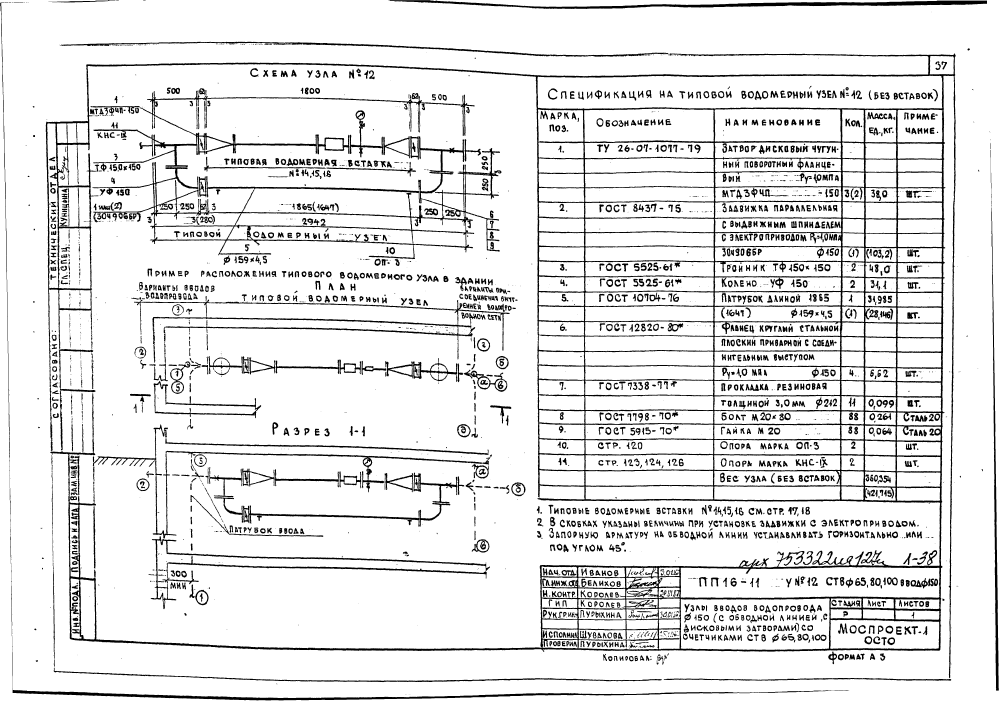 37
Схема узла №12
500 1800 500
1
МТДЗФЧП-150
11
КНС-IX
3
ТФ150x150
4
УФ 150
1 или(2)
(30ч906БР)
ТИПОВАЯ ВОДОМЕРНАЯ ВСТАВКА
№14,15,16
250
250
250 250
1865(1647)
250 250
3 3(280) 3
2942
ТИПОВОЙ ВОДОМЕРНЫЙ УЗЕЛ
6
7
8
9
5
Ф159×4,5
10
ОП-3
Пример расположения типового водомерного узла в здании
План
Варианты вводов водопровода
ТИПОВОЙ ВОДОМЕРНЫЙ УЗЕЛ
Варианты присоединения внутренней водопроводной сети
3
2
1
5
4
5
а
6
3
1
1
Разрез 1-1
3
2
а
5
6
Патрубок ввода
300
мин
1
Спецификация на типовой водомерный узел №12 (без вставок)
Марка, поз. Обозначение Наименование Кол. Масса, ед., кг. Примечание.
1. ТУ 26-07-1077-79 Затвор дисковый чугун-
ный поворотный фланце-
вый Ру=1,0МПа
МТДЗФЧП -150 3(2) 38,0 шт.
2. ГОСТ 8437-75 Задвижка параллельная
с выдвижным шпинделем
с электроприводом Ру=1,0МПа
30ч906БР Ф150 (1) (103,2) шт.
3. ГОСТ 5525-61* Тройник ТФ150×150 2 48,0 шт.
4. ГОСТ 5525-61* Колено УФ 150 2 31,1 шт.
5. ГОСТ 10704-76 Патрубок длиной 1865 1 31,985
(1647) Ф159×4,5 (1) (28,146) шт.
6. ГОСТ 12820-80* Фланец круглый стальной
плоский приварной с соеди-
нительным выступом
Ру=1,0 МПа Ф150 4 6,62 шт.
7. ГОСТ 7338-77* Прокладка резиновая
толщиной 3,0мм Ф212 11 0,099 шт.
8 ГОСТ 7798-70* Болт М20×80 88 0,261 Сталь20
9. ГОСТ 5915-70* Гайка М20 88 0,064 Сталь20
10. СТР. 120 Опора марка ОП-3 2 шт.
11. СТР. 123, 124, 126 Опора марка КНС-IX 2 шт.
Вес узла (без вставок) 360,354
(421,715)
1. Типовые водомерные вставки №14,15,16 см. стр. 17,18
2. В скобках указаны величины при установке задвижки с электроприводом.
3. Запорную арматуру на обводной линии устанавливать горизонтально или
под углом 45°.
Л-38
Нач. отд. Иванов
Гл.инж.отд Белихов
Н.контр. Королев
ГИП Королев
Рук.груп. Пурыхина
Исполнил Шувалова
Проверил Пурыхина
ПП16-11 У№12 СТВф65,80,100 вводф150
Узлы вводов водопровода
Ф150 (с обводной линией, с
дисковыми затворами) со
счетчиками СТВ Ф65,80,100
Стадия Лист Листов
Р 1
Моспроект-1
ОСТО
Копировал:
Формат А3
Согласовано:
Технический отдел
Гл.спец. Куницина
Инв.№подл. Подпись и дата Взам.инв.№